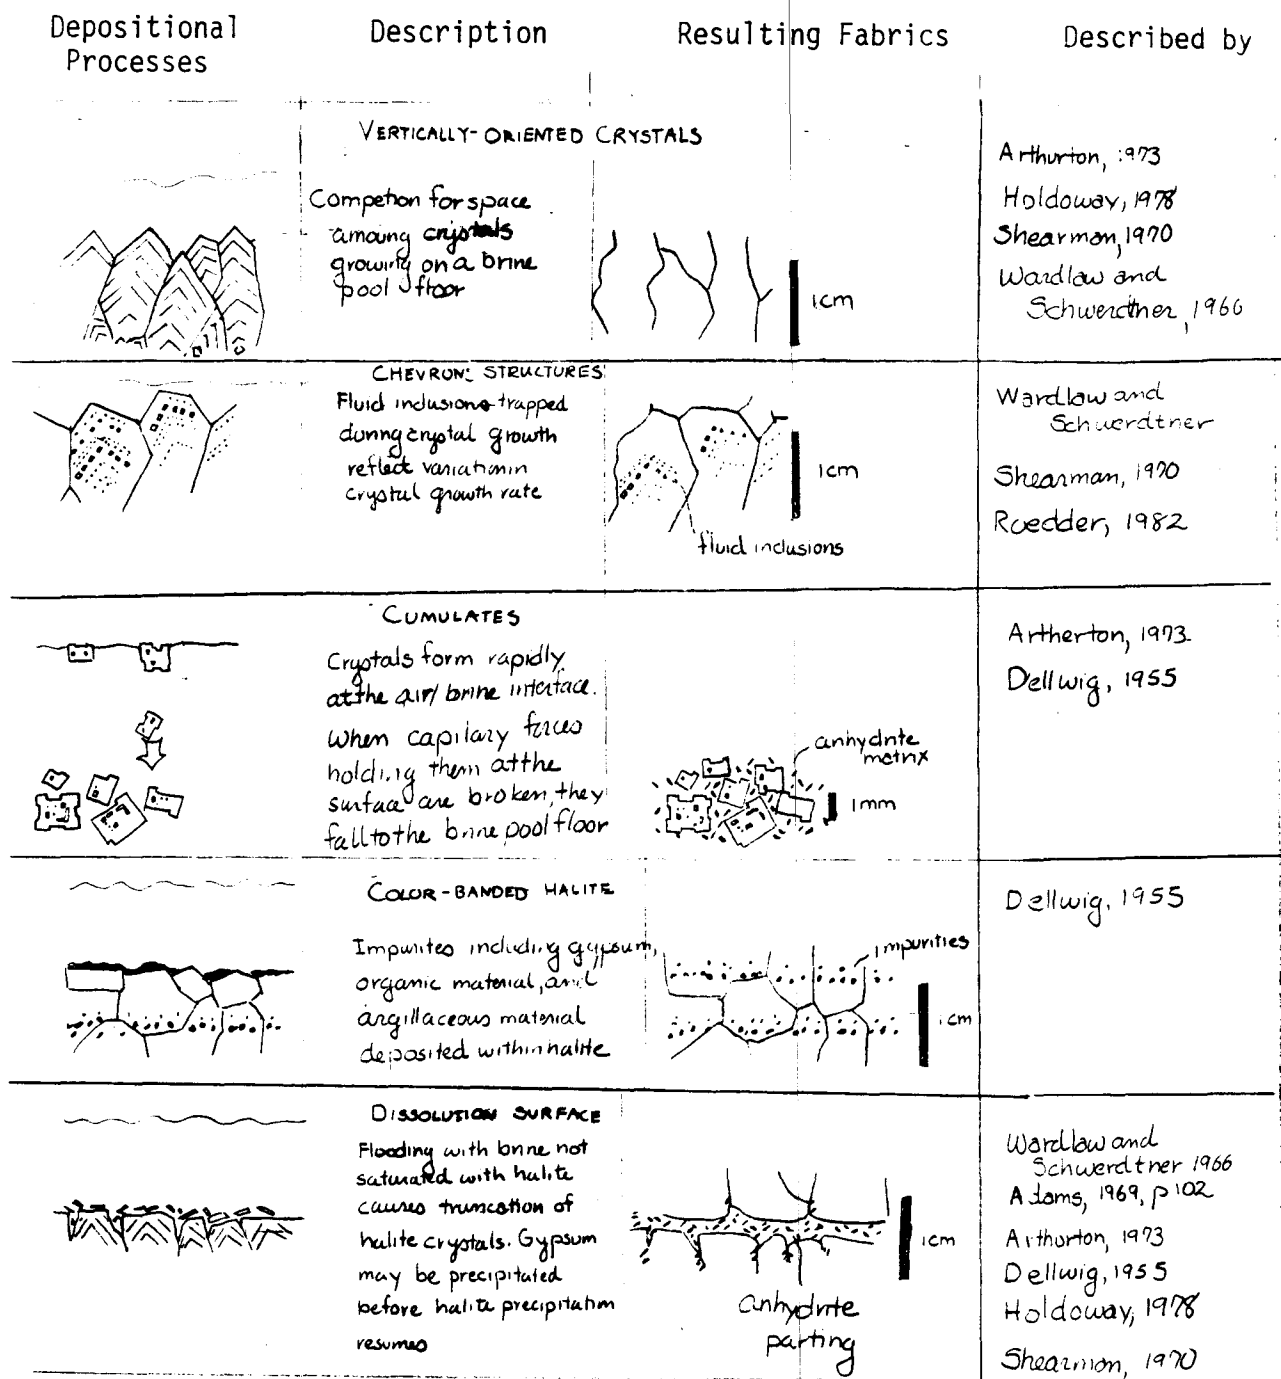 Depositional
Processes
Description
Resulting Fabrics
Described by
VERTICALLY-ORIENTED CRYSTALS
Competion for space
amoung crystals
growing on a brine
pool floor
1cm
Arthurton, 1973
Holdoway, 1978
Shearman, 1970
Wardlaw and
Schwerdtner, 1966
CHEVRON STRUCTURES
Fluid inclusions trapped
during crystal growth
reflect variation in
crystal growth rate
1cm
fluid inclusions
Wardlaw and
Schwerdtner
Shearman, 1970
Roedder, 1982
CUMULATES
Crystals form rapidly
at the air/brine interface.
When capilary forces
holding them at the
surface are broken, they
fall to the brine pool floor
anhydrite
matrix
1mm
Artherton, 1973
Dellwig, 1955
COLOR-BANDED HALITE
Impurites including gypsum,
organic material, and
argillaceous material
deposited within halite
impurities
1cm
Dellwig, 1955
DISSOLUTION SURFACE
Flooding with brine not
saturated with halite
causes truncation of
halite crystals. Gypsum
may be precipitated
before halite precipitation
resumes
1cm
anhydrite
parting
Wardlaw and
Schwerdtner 1966
Adams, 1969, p 102
Arthurton, 1973
Dellwig, 1955
Holdoway, 1978
Shearman, 1970